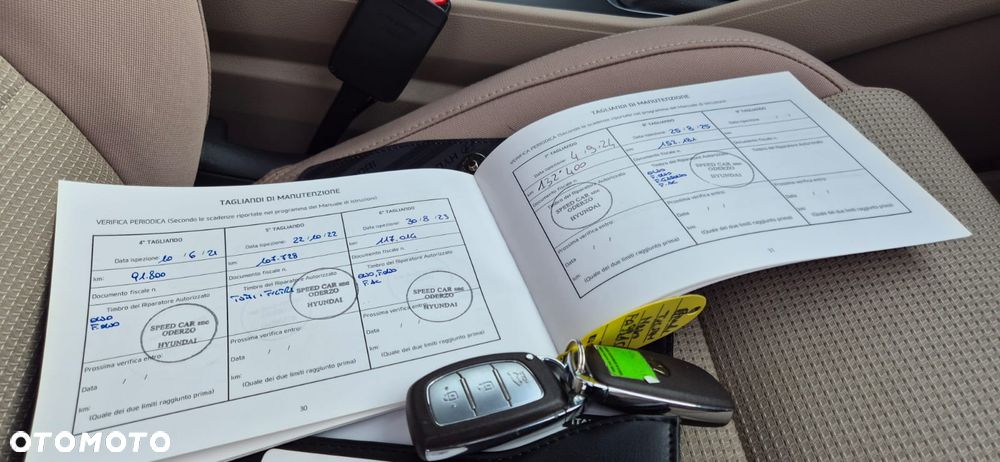 TAGLIANDI DI MANUTENZIONE
VERIFICA PERIODICA (Secondo le scadenze riportate nel programma del Manuale di istruzioni)
4° TAGLIANDO
Data ispezione: 10 / 6 / 21
km: 91.800
Documento fiscale n.
Timbro del Riparatore Autorizzato
OLIO
F. OLIO
SPEED CAR snc
ODERZO
HYUNDAI
Prossima verifica entro:
Data / /
km:
(Quale dei due limiti raggiunto prima)
5° TAGLIANDO
Data ispezione: 22 / 10 / 22
km: 107.728
Documento fiscale n.
Timbro del Riparatore Autorizzato
SPEED CAR snc
ODERZO
HYUNDAI
Prossima verifica entro:
Data / /
km:
(Quale dei due limiti raggiunto prima)
6° TAGLIANDO
Data ispezione: 30 / 8 / 23
km: 117.014
Documento fiscale n.
Timbro del Riparatore Autorizzato
OLIO, F. OLIO
F. AC
SPEED CAR snc
ODERZO
HYUNDAI
Prossima verifica entro:
Data / /
km:
(Quale dei due limiti raggiunto prima)
30
TAGLIANDI DI MANUTENZIONE
VERIFICA PERIODICA (Secondo le scadenze riportate nel programma del Manuale di istruzioni)
7° TAGLIANDO
Data ispezione: 4 / 9 / 24
km: 132.400
Documento fiscale n.
Timbro del Riparatore Autorizzato
SPEED CAR snc
ODERZO
HYUNDAI
Prossima verifica entro:
Data / /
km:
(Quale dei due limiti raggiunto prima)
8° TAGLIANDO
Data ispezione: 25 / 8 / 25
km: 157.181
Documento fiscale n.
Timbro del Riparatore Autorizzato
OLIO
F. OLIO
F. AC
SPEED CAR snc
ODERZO
HYUNDAI
Prossima verifica entro:
Data / /
km:
(Quale dei due limiti raggiunto prima)
9° TAGLIANDO
Data ispezione: / /
km:
Documento fiscale n.
Timbro del Riparatore Autorizzato
Prossima verifica entro:
Data / /
km:
(Quale dei due limiti raggiunto prima)
31
OTOMOTO